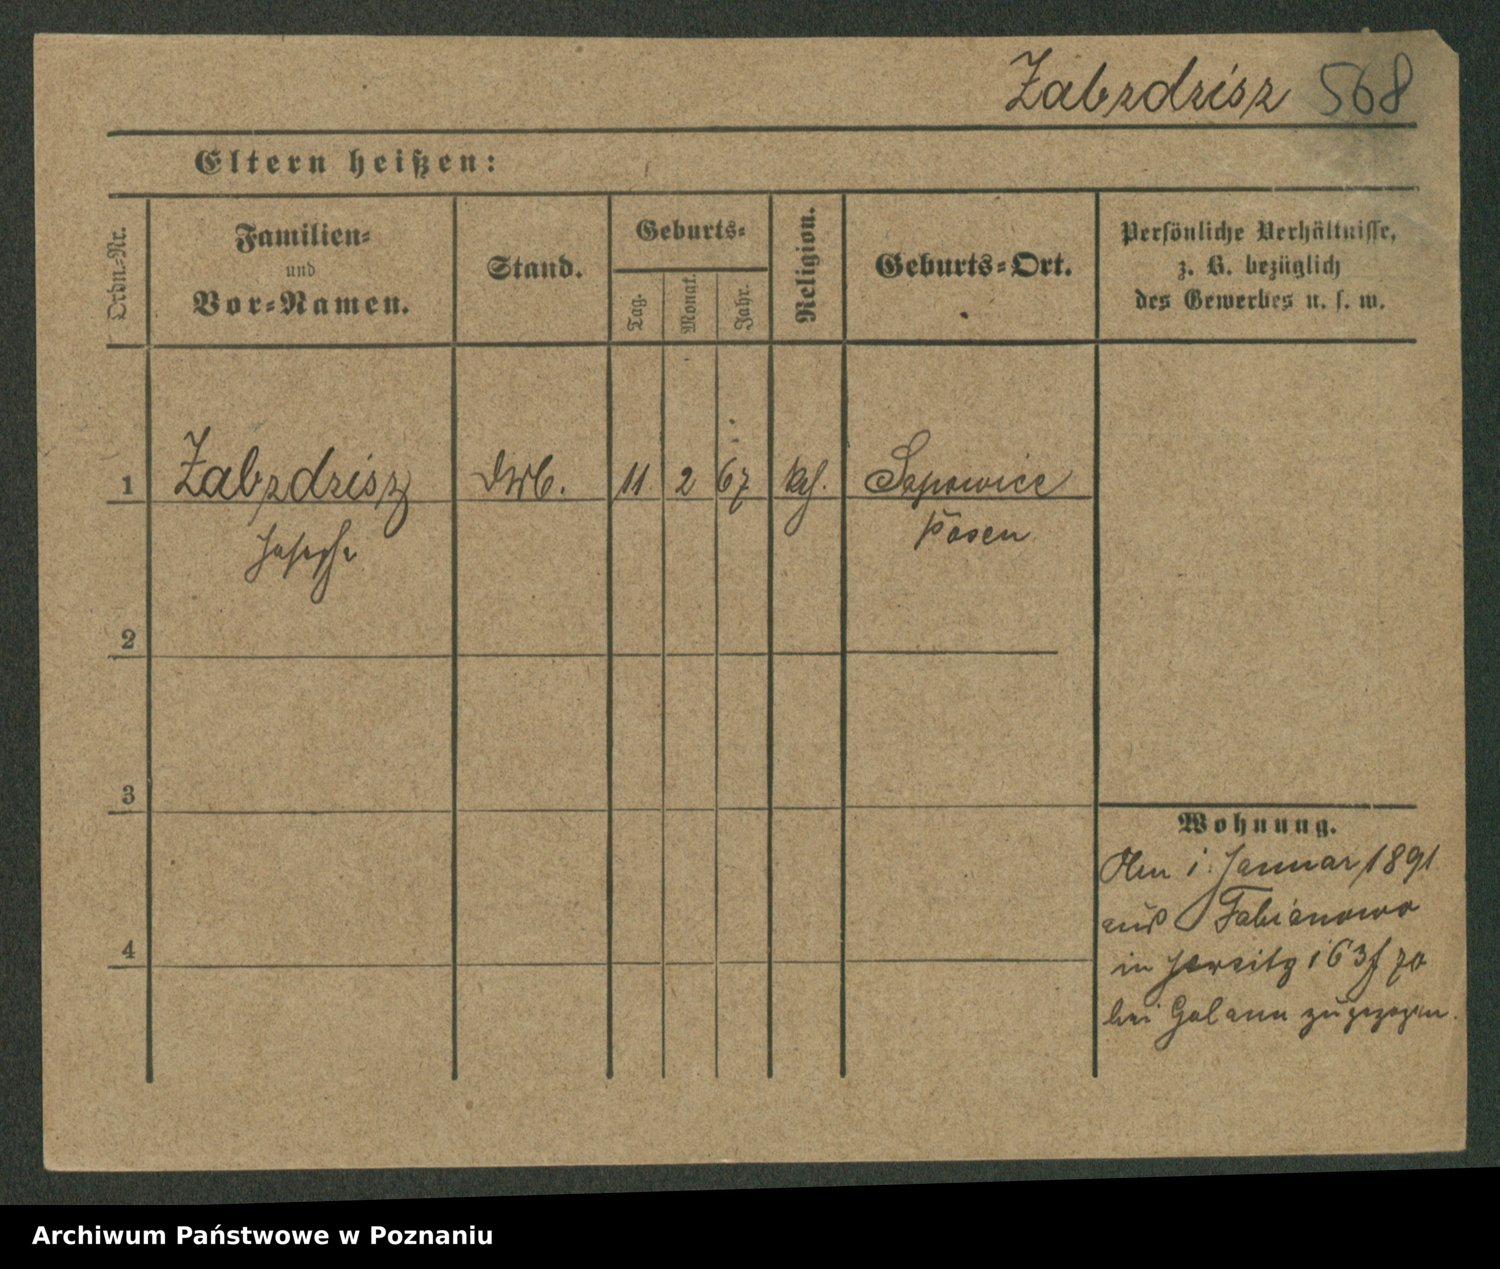 Zabzdzisz 568
Eltern heißen:
Ordn.-Nr.
Familien-
und
Vor-Namen.
Stand.
Geburts-
Tag.
Monat.
Jahr.
Religion.
Geburts-Ort.
Persönliche Verhältnisse,
z. B. bezüglich
des Gewerbes u. s. w.
1 Zabzdzisz 11 2 67 kth. Sapowice
Posen
2
3
4
Wohnung.
Am 1. Januar 1891
aus Fabianowo
in Jersitz 163
bei zugezogen.
Archiwum Państwowe w Poznaniu